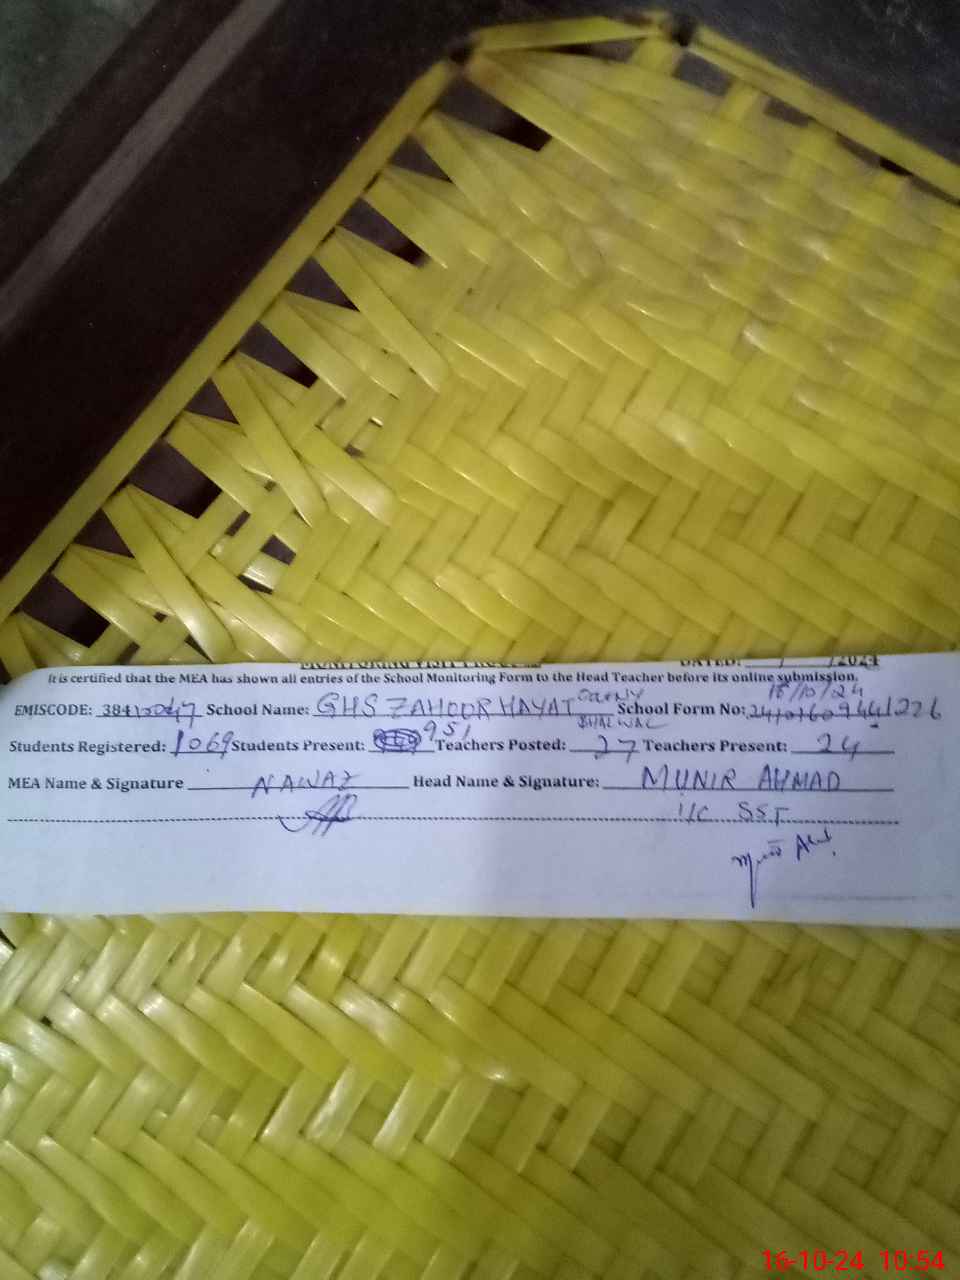 MONITORING VISIT PROFORMA DATED: ___/___/2024
It is certified that the MEA has shown all entries of the School Monitoring Form to the Head Teacher before its online submission.
16/10/24
EMISCODE: 38412047 School Name: GHS ZAHOOR HAYAT COLONY BHALWAL School Form No:
Students Registered: 1069 Students Present: 951 Teachers Posted: 27 Teachers Present: 24
MEA Name & Signature NAWAZ Head Name & Signature: MUNIR AHMAD
I/C SST
16-10-24 10:54